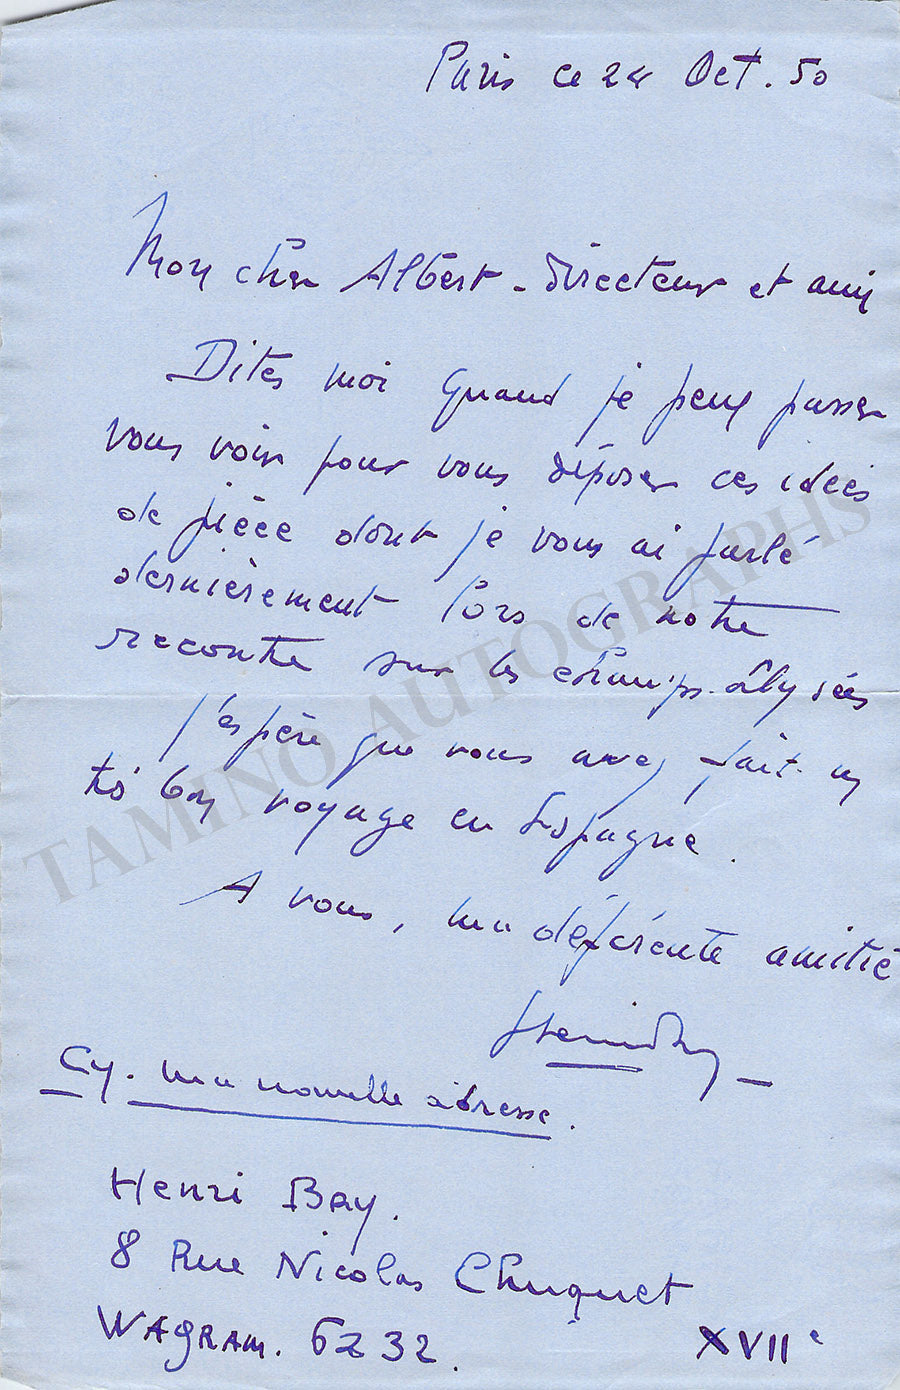 Paris ce 24 Oct. 50
Mon cher Albert - Directeur et ami
Dites moi quand je peux passer
vous voir pour vous déposer ces idées
de pièce dont je vous ai parlé
dernièrement lors de notre
recontre sur les champs-Élysées
J'espère que vous avez fait un
très bon voyage en Espagne.
A vous, ma déférente amitié
Cy. ma nouvelle adresse.
Henri Bay.
8 Rue Nicolas Chuquet
WAGRAM. 6232. XVIIe
TAMINO AUTOGRAPHS